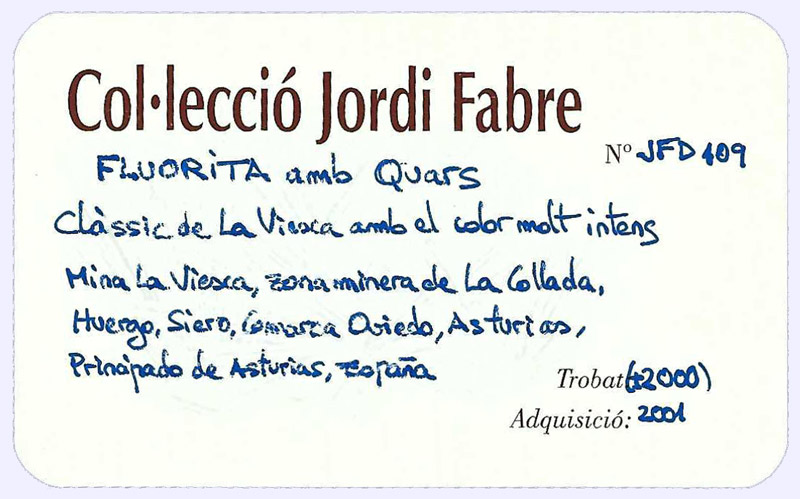 Col·lecció Jordi Fabre
Nº JFD 109
FLUORITA amb Quars
Clàssic de La Viesca amb el color molt intens
Mina La Viesca, zona minera de La Collada,
Huergo, Siero, Comarca Oviedo, Asturias,
Principado de Asturias, España
Trobat (±2000)
Adquisició: 2001